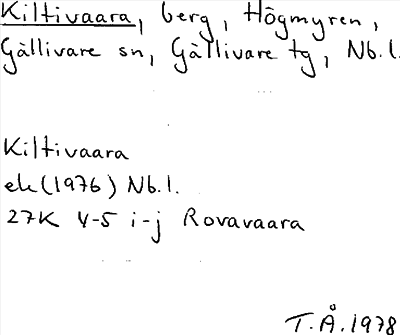 Kiltivaara, berg, Högmyren,
Gällivare sn, Gällivare tg, Nb.l.
Kiltivaara
ek(1976) Nb.l.
27K 4-5 i-j Rovavaara
T.Å.1978